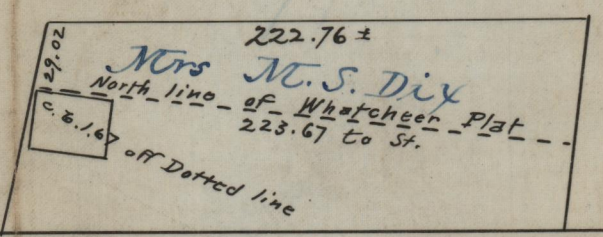 222.76 ±
29.02
Mrs M. S. Dix
North line of Whatcheer Plat
223.67 to St.
1.67 off Dotted line